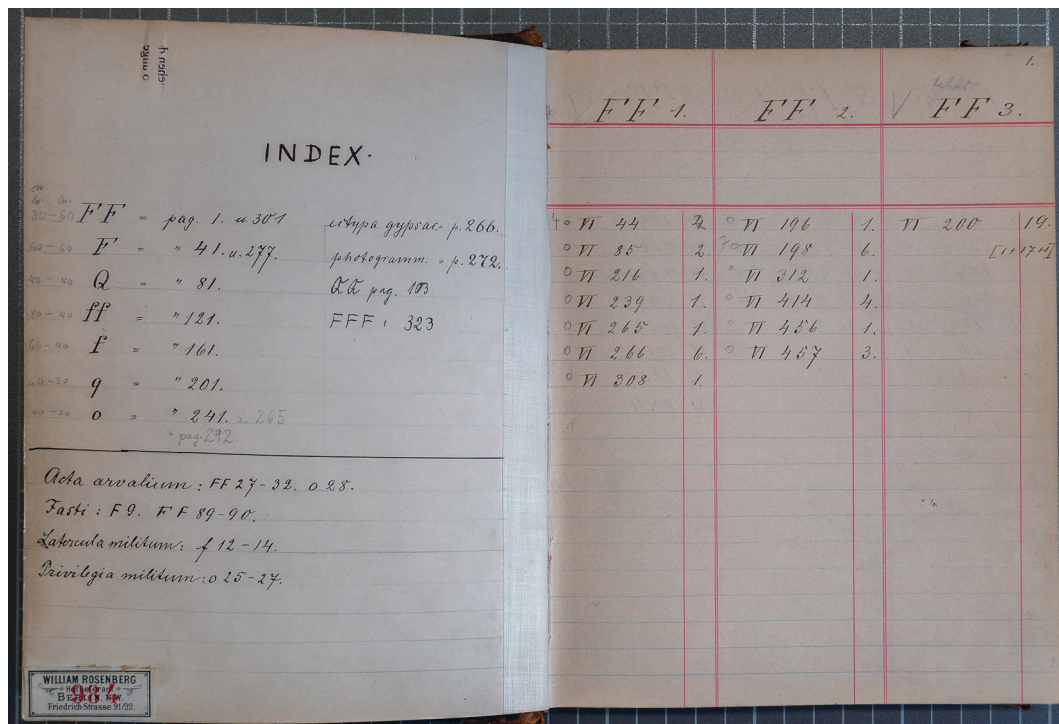 INDEX.
cm.
80-60 FF = pag. 1. u. 301
60-60 F = " 41. u. 277.
40-40 Q = " 81.
80-40 ff = " 121.
60-40 f = " 161.
60-30 q = " 201.
40-20 o = " 241. u. 265
+ pag. 292.
ectypa gypsac. p. 266.
photogramm. = p. 272.
QQ pag. 103
FFF 323
Acta arvalium: FF 27-32. o 28.
Fasti: F 9. FF 89-90.
Latercula militum: f 12-14.
Privilegia militum: o 25-27.
WILLIAM ROSENBERG
Hoflieferant
BERLIN, N.W.
Friedrich-Strasse 91/92.
984
1.
FF 1.
VI 44 2.
VI 85 2.
VI 216 1.
VI 239 1.
VI 265 1.
VI 266 6.
VI 308 1.
FF 2.
VI 196 1.
VI 198 6.
VI 312 1.
VI 414 4.
VI 456 1.
VI 457 3.
fehlt
FF 3.
VI 200 19.
[1+17+1]